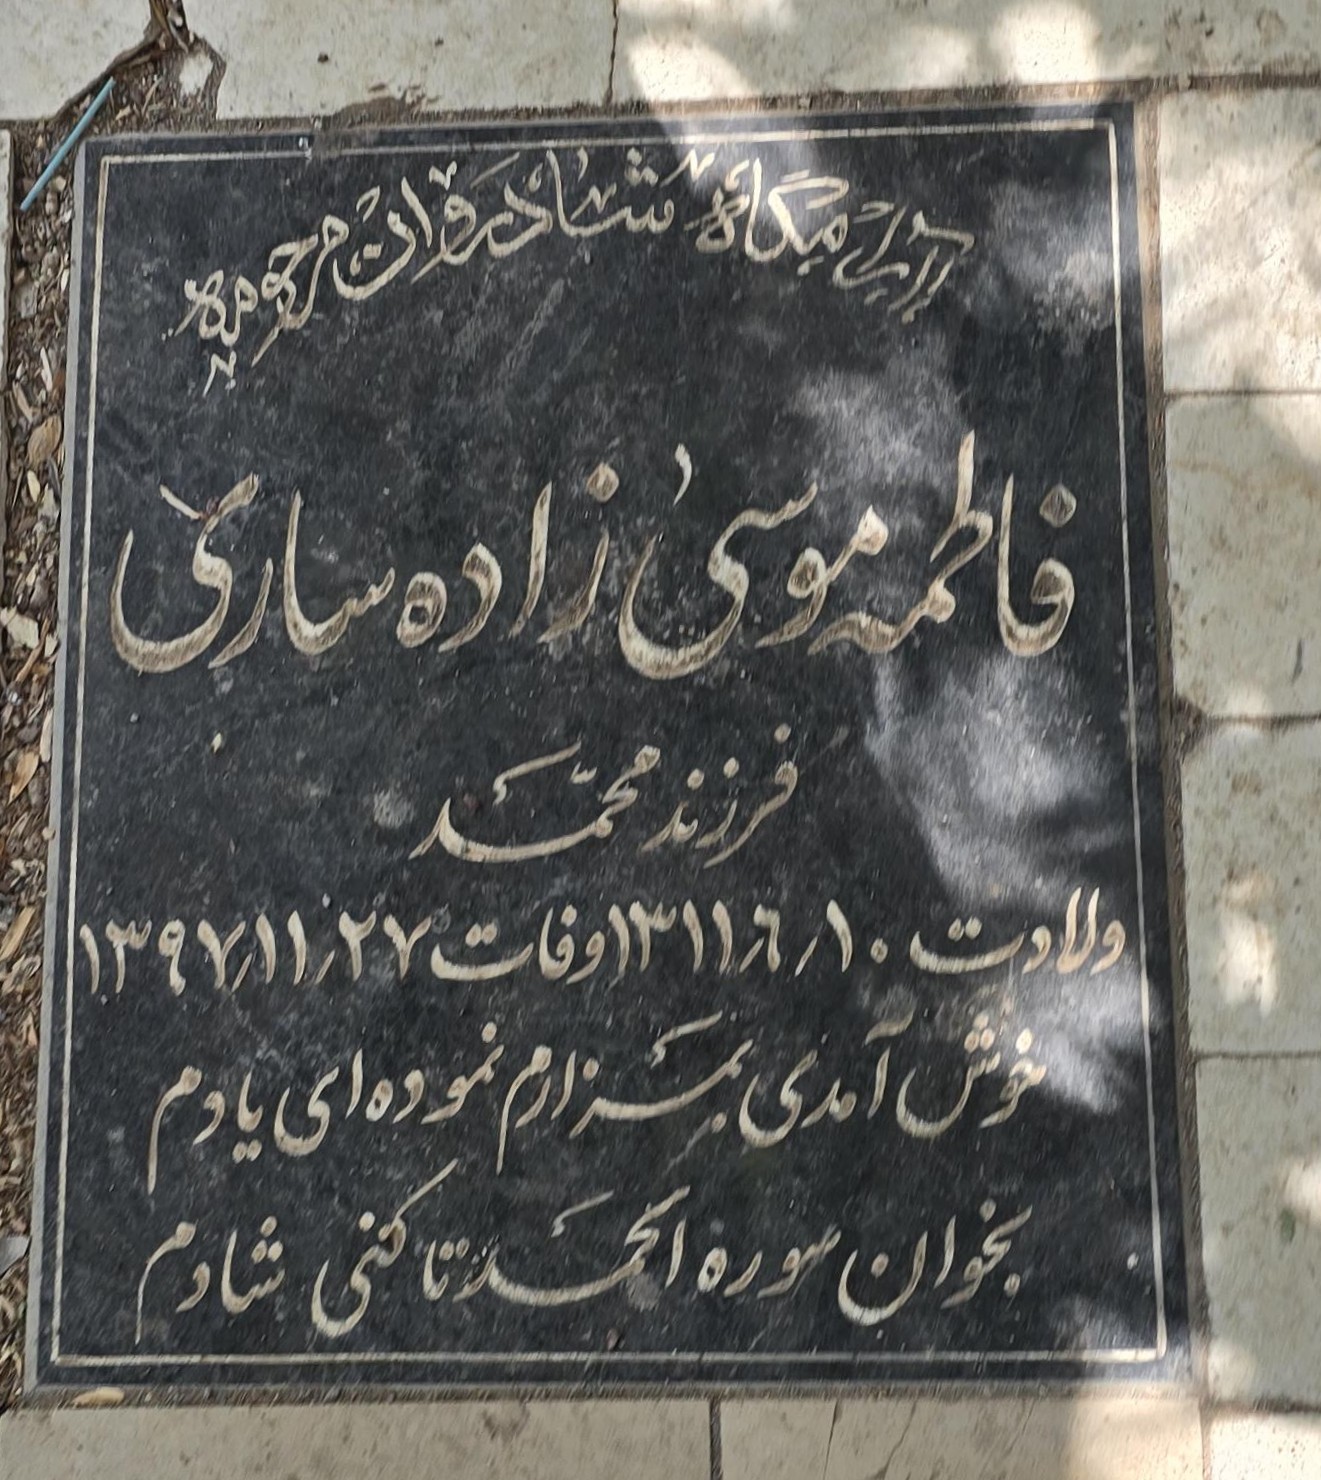 آرامگاه شادروان مرحومه
فاطمه موسی زاده ساری
فرزند محمد
ولادت ۱۳۱۱٫۶٫۱۰ وفات ۱۳۹۷٫۱۱٫۲۷
خوش آمدی بمزارم نموده ای یادم
بخوان سوره الحمد تا کنی شادم